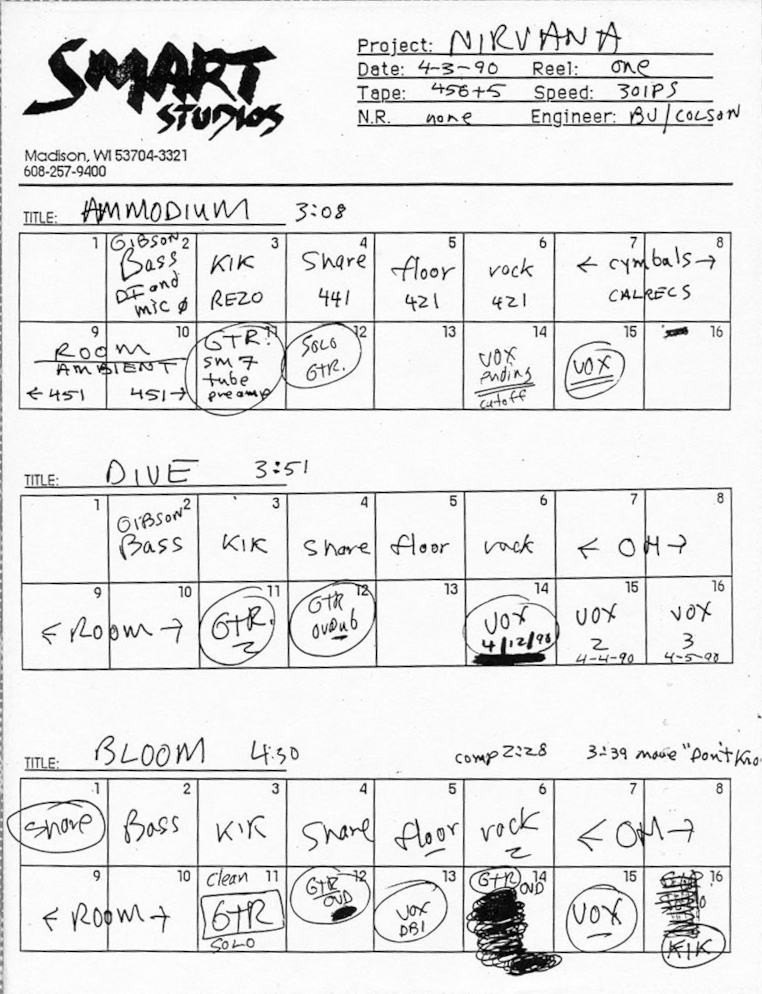 SMART
STUDIOS
Project: NIRVANA
Date: 4-3-90 Reel: one
Tape: 456+5 Speed: 30IPS
N.R. none Engineer: BV/COLSON
Madison, WI 53704-3321
608-257-9400
TITLE: AMMODIUM 3:08
1 2 3 4 5 6 7 8
GIBSON Bass DI and mic ø
KIK REZO
Snare 441
floor 421
rack 421
← cymbals →
CALRECS
9 10 11 12 13 14 15 16
ROOM
AMBIENT
← 451 451 →
GTR! sm7 tube preamp
SOLO GTR.
VOX ending cutoff
VOX
TITLE: DIVE 3:51
1 2 3 4 5 6 7 8
GIBSON Bass
KIK
Snare
floor
rack
← OH →
9 10 11 12 13 14 15 16
← Room →
GTR. 2
GTR ovdub
VOX 4/12/90
VOX 2 4-4-90
VOX 3 4-5-90
TITLE: BLOOM 4:30 comp 2:28 3:39 move "Don't Kno
1 2 3 4 5 6 7 8
Snare
Bass
KIK
Snare
floor
rack
← OH →
9 10 11 12 13 14 15 16
← ROOM →
Clean GTR SOLO
GTR OVD
VOX DBl
GTR OVD
VOX
KIK